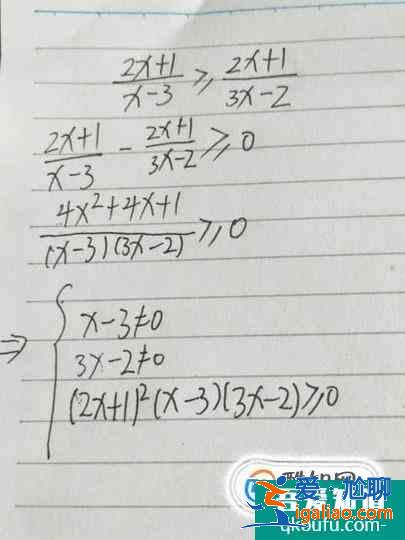 2x+1/x-3 ≥ 2x+1/3x-2
2x+1/x-3 - 2x+1/3x-2 ≥ 0
4x²+4x+1/(x-3)(3x-2) ≥ 0
⇒ { x-3≠0
3x-2≠0
(2x+1)²(x-3)(3x-2)≥0
爱·尬聊
igaliao.com
qkoufu.com